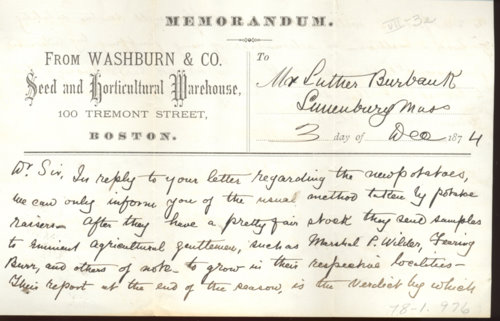 MEMORANDUM.
VII-32
FROM WASHBURN & CO.
Seed and Horticultural Warehouse,
100 TREMONT STREET,
BOSTON.
To
Mr Luther Burbank
Lunenburg Mass
3 day of Dec 1874
Dr Sir, In reply to your letter regarding the new potatoes,
we can only inform you of the usual method taken by potatoe
raisers - After they have a pretty fair stock they send samples
to eminent agricultural gentlemen, such as Marshal P. Wilder, Fearing
Burr, and others of note - to grow in their respective localities -
Their report at the end of the season, is the verdict by which
78-1.976